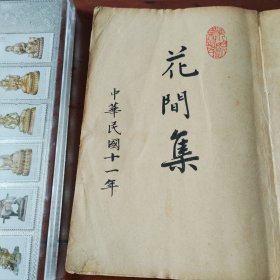 花間集
中華民國十一年